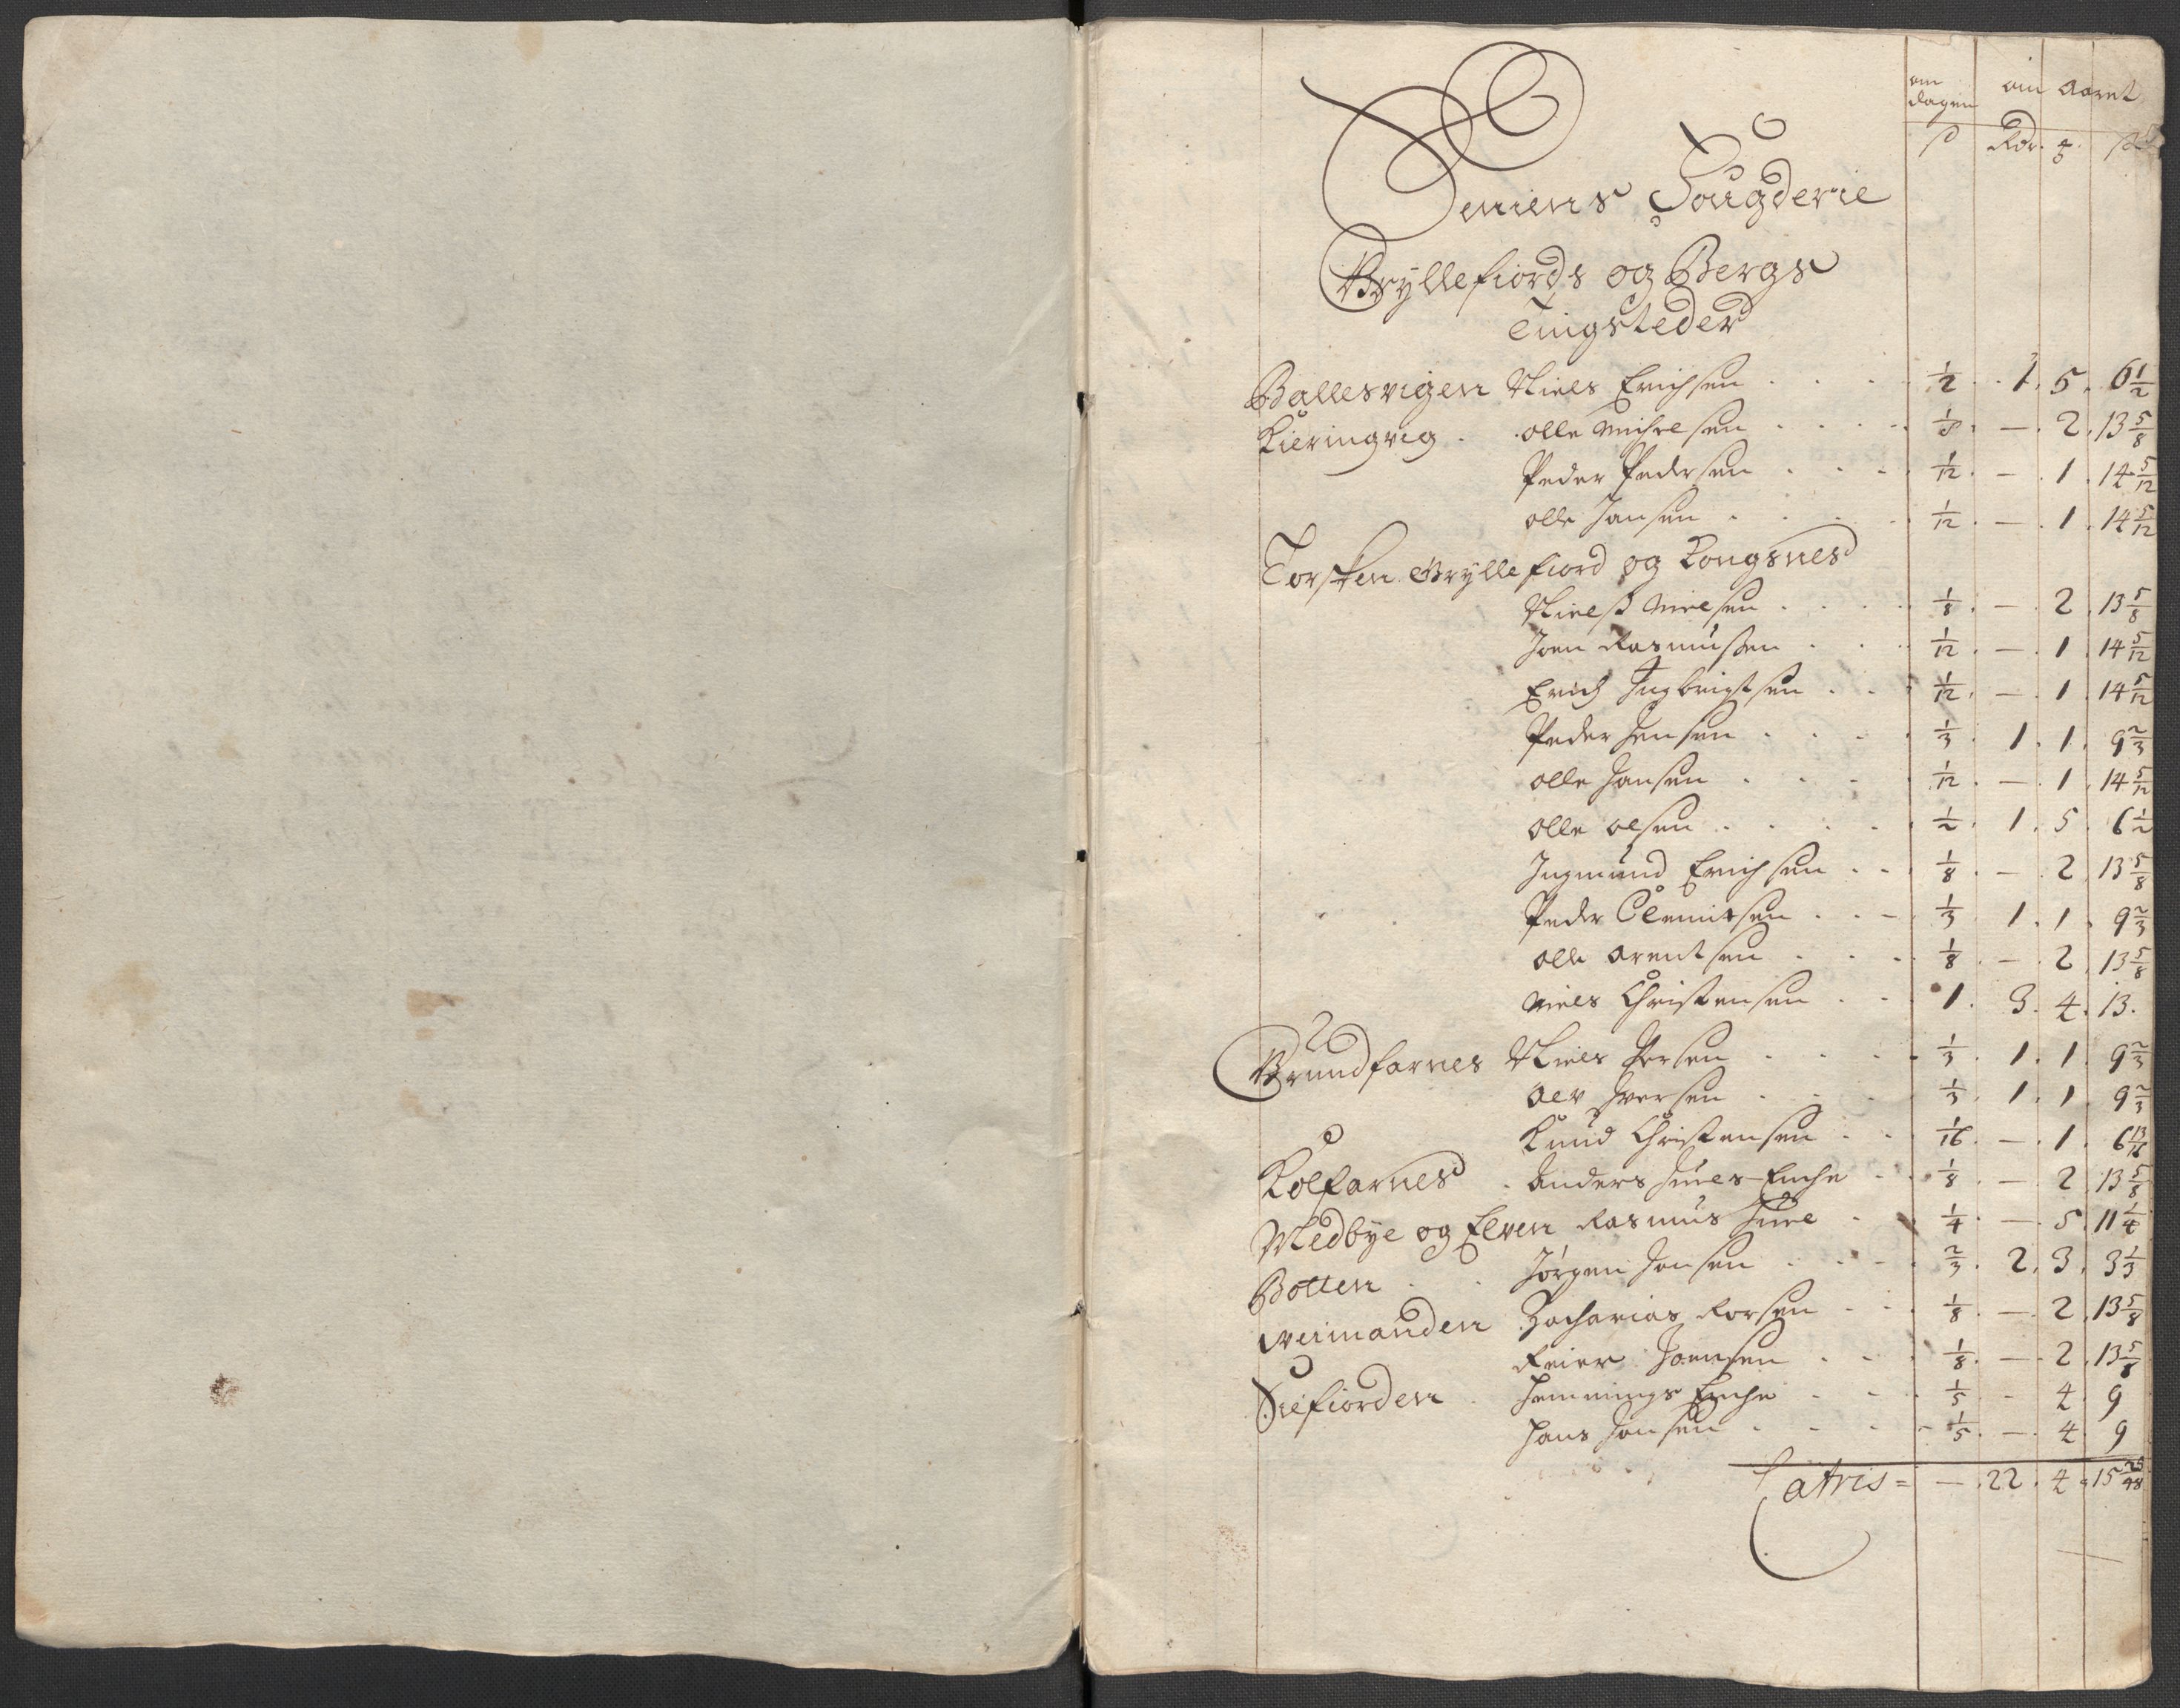 om dagen om Aaret
ß Rdr. ß
Seniens Fougderie
Gryllefiords og Bergs
Tingsteder
Ballesvigen Niels Erichsen 1/2 1. 5. 6 1/2
Kieringvig olle Michelsen 1/8 — 2. 13 5/8
Peder Pedersen 1/12 — 1. 14 5/12
olle Jansen 1/12 — 1. 14 5/12
Torsken Gryllefiord og Kongsnes
Nielß Nielsen 1/8 — 2. 13 5/8
Joen Rasmussen 1/12 — 1. 14 5/12
Erich Ingbrigtsen 1/12 — 1. 14 5/12
Peder Jensen 1/3 1. 1. 9 2/3
olle Hansen 1/12 — 1. 14 5/12
olle olsen 1/2 1. 5. 6 1/2
Ingmund Erichsen 1/8 — 2. 13 5/8
Peder Clemitsen 1/3 1. 1. 9 2/3
olle Arentsen 1/8 — 2. 13 5/8
Niels Christensen 1. 3. 4. 13.
Grundfarnes Niels Persen 1/3 1. 1. 9 2/3
Iversen 1/3 1. 1. 9 2/3
Knud Christensen 1/16 — 1. 6 13/16
Kolfarnes Anders Enche 1/8 — 2. 13 5/8
Medbye og Elven Rasmus 1/4 — 5. 11 1/4
Botten Jørgen Jonsen 2/3 2. 3. 3 1/3
Zacharias 1/8 — 2. 13 5/8
Reier Joensen 1/8 — 2. 13 5/8
Sifiorden Hemmings Enche 1/5 - 4. 9
Hans Jonsen 1/5 — 4. 9
Latris = — 22. 4 = 15 25/48